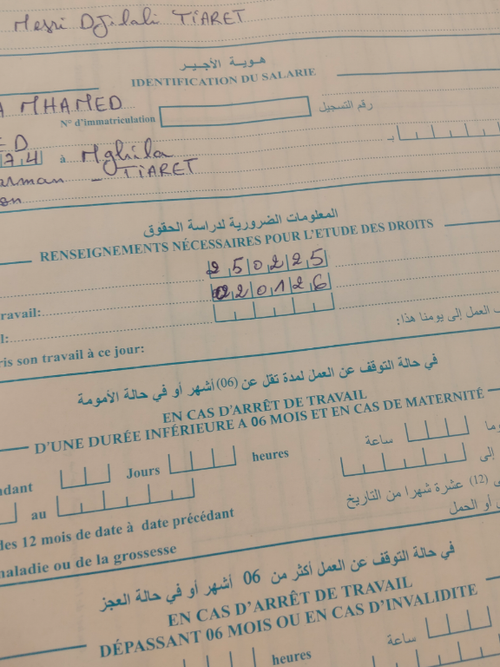 Mesri Djilali TIARET
هوية الأجير
IDENTIFICATION DU SALARIE
A MHAMED
N° d'immatriculation
رقم التسجيل
ED
74 à Mghila
arman - TIARET
المعلومات الضرورية لدراسة الحقوق
RENSEIGNEMENTS NÉCESSAIRES POUR L'ETUDE DES DROITS
250225
ravail: 020126
l:
العمل إلى يومنا هذا:
ris son travail à ce jour:
في حالة التوقف عن العمل لمدة تقل عن (06) أشهر أو في حالة الأمومة
EN CAS D'ARRÊT DE TRAVAIL
D'UNE DURÉE INFÉRIEURE A 06 MOIS ET EN CAS DE MATERNITÉ
ndant Jours heures ساعة
au إلى
(12) عشرة شهرا من التاريخ
des 12 mois de date à date précédant
أو الحمل
maladie ou de la grossesse
في حالة التوقف عن العمل أكثر من 06 أشهر أو في حالة العجز
EN CAS D'ARRÊT DE TRAVAIL
DÉPASSANT 06 MOIS OU EN CAS D'INVALIDITE
heures ساعة